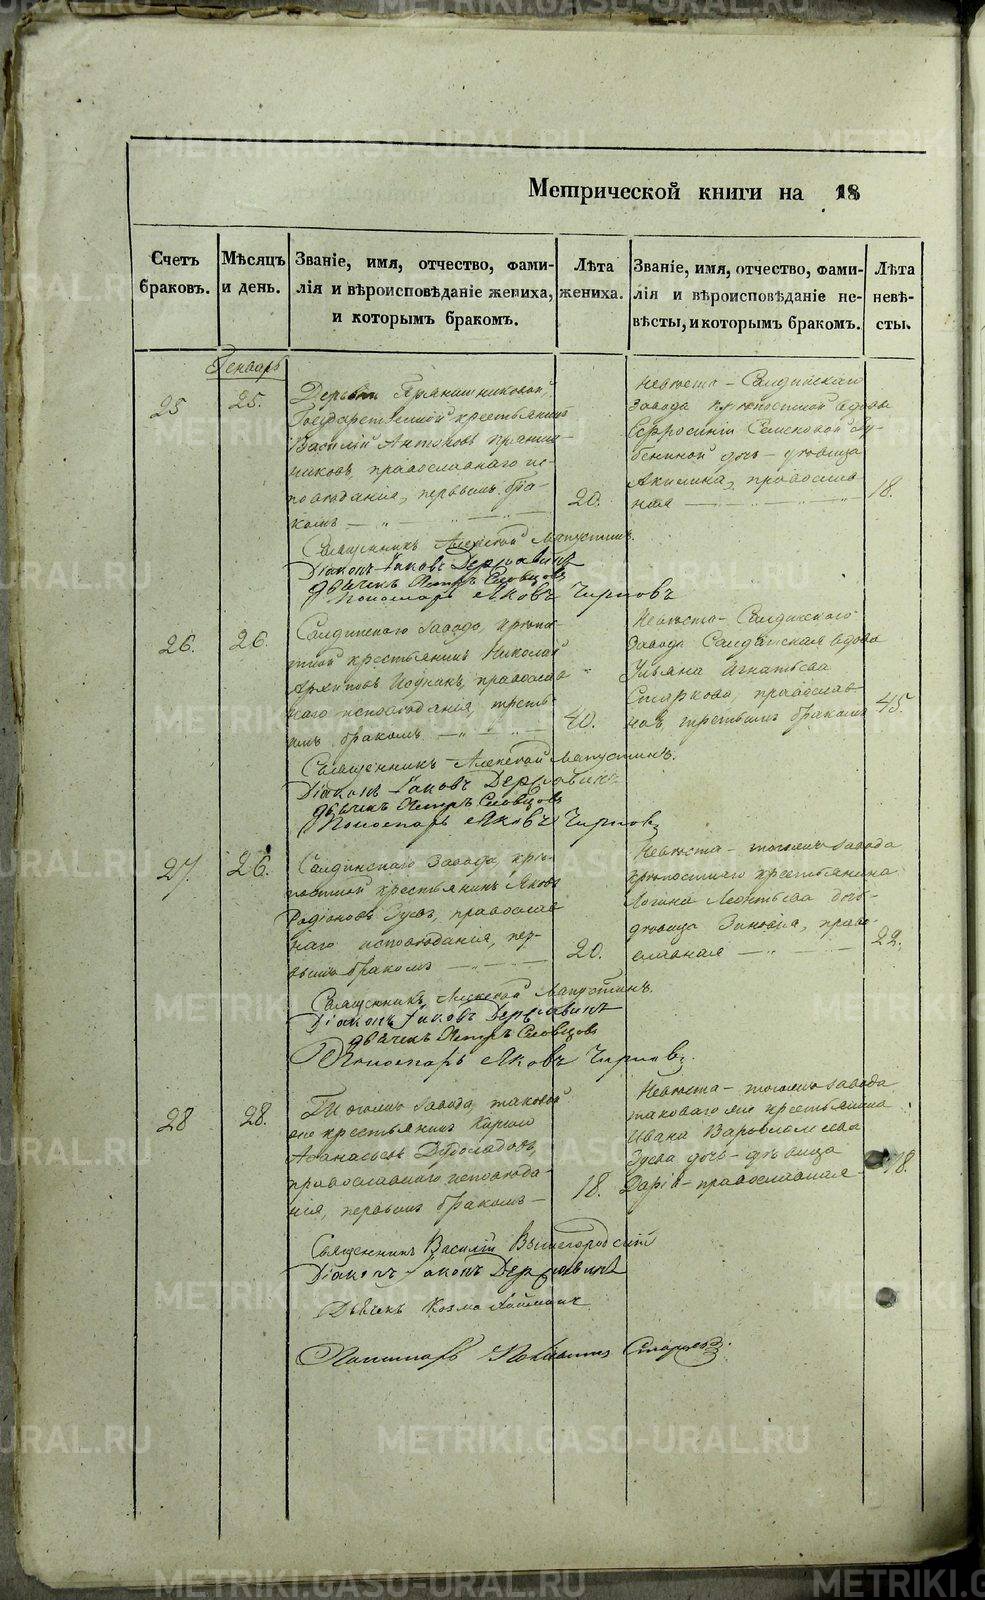 Метрической книги на 18
Счетъ браковъ.
Мѣсяцъ и день.
Званіе, имя, отчество, фами-
лія и вѣроисповѣданіе жениха,
и которымъ бракомъ.
Лѣта
жениха.
Званіе, имя, отчество, фами-
лія и вѣроисповѣданіе не-
вѣсты, и которымъ бракомъ.
Лѣта
невѣ-
сты.
Генварь
25
25.
Государственной крестьянинъ
Василій Антоновъ Пряниш-
никовъ, православнаго ис-
повѣданія, первымъ бра-
комъ
20.
Невѣста - Салдинскаго
завода крѣпостной вдовы
дочь - дѣвица
Акилина, православ-
ная
18.
Священникъ Алексѣй Лапустинъ.
Діаконъ Іаковъ Державинъ
Дьячекъ Петръ Словцовъ
Пономарь Яковъ Чирковъ
26.
26.
Салдинскаго завода, крѣпо-
стной крестьянинъ Николай
Архиповъ, православ-
наго исповѣданія, треть-
имъ бракомъ
40.
Невѣста - Салдинскаго
завода вдова
Ульяна Игнатьева
Старкова, православ-
ная, третьимъ бракомъ
45.
Священникъ Алексѣй Лапустинъ.
Діаконъ Іаковъ Державинъ
Дьячекъ Петръ Словцовъ
Пономарь Яковъ Чирковъ
27.
26.
Салдинскаго завода, крѣ-
постной крестьянинъ Яковъ
Родіоновъ Зуевъ, православ-
наго исповѣданія, пер-
вымъ бракомъ
20.
Невѣста - тогожъ завода
крѣпостнаго крестьянина
Логина Леонтьева дочь
дѣвица, право-
славная
22.
Священникъ Алексѣй Лапустинъ.
Діаконъ Іаковъ Державинъ
Дьячекъ Петръ Словцовъ
Пономарь Яковъ Чирковъ
28
28.
Тогожъ завода, таковой
же крестьянинъ
Афанасьевъ
православнаго исповѣда-
нія, первымъ бракомъ
18.
Невѣста - тогожъ завода
таковаго же крестьянина
Ивана Варфоломеева
Зуева дочь - дѣвица
Дарья - православная
18.
Священникъ Василій Вышегородскій
Діаконъ Іаковъ Державинъ
Дьячекъ Козма
Пономарь